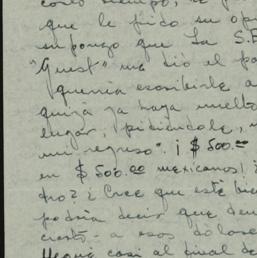 que le pido su opi
supongo que la S.E
"Guest" me dio el pa
quería escribirle a
quizá ya haya vuelto
lugar, pidiéndole,
mi regreso". ¡ $500.00
en $500.00 mexicanos! ¿
dro? ¿Cree que está bie
podría decir que den
cientos a esos dólare
llegué casi al final de